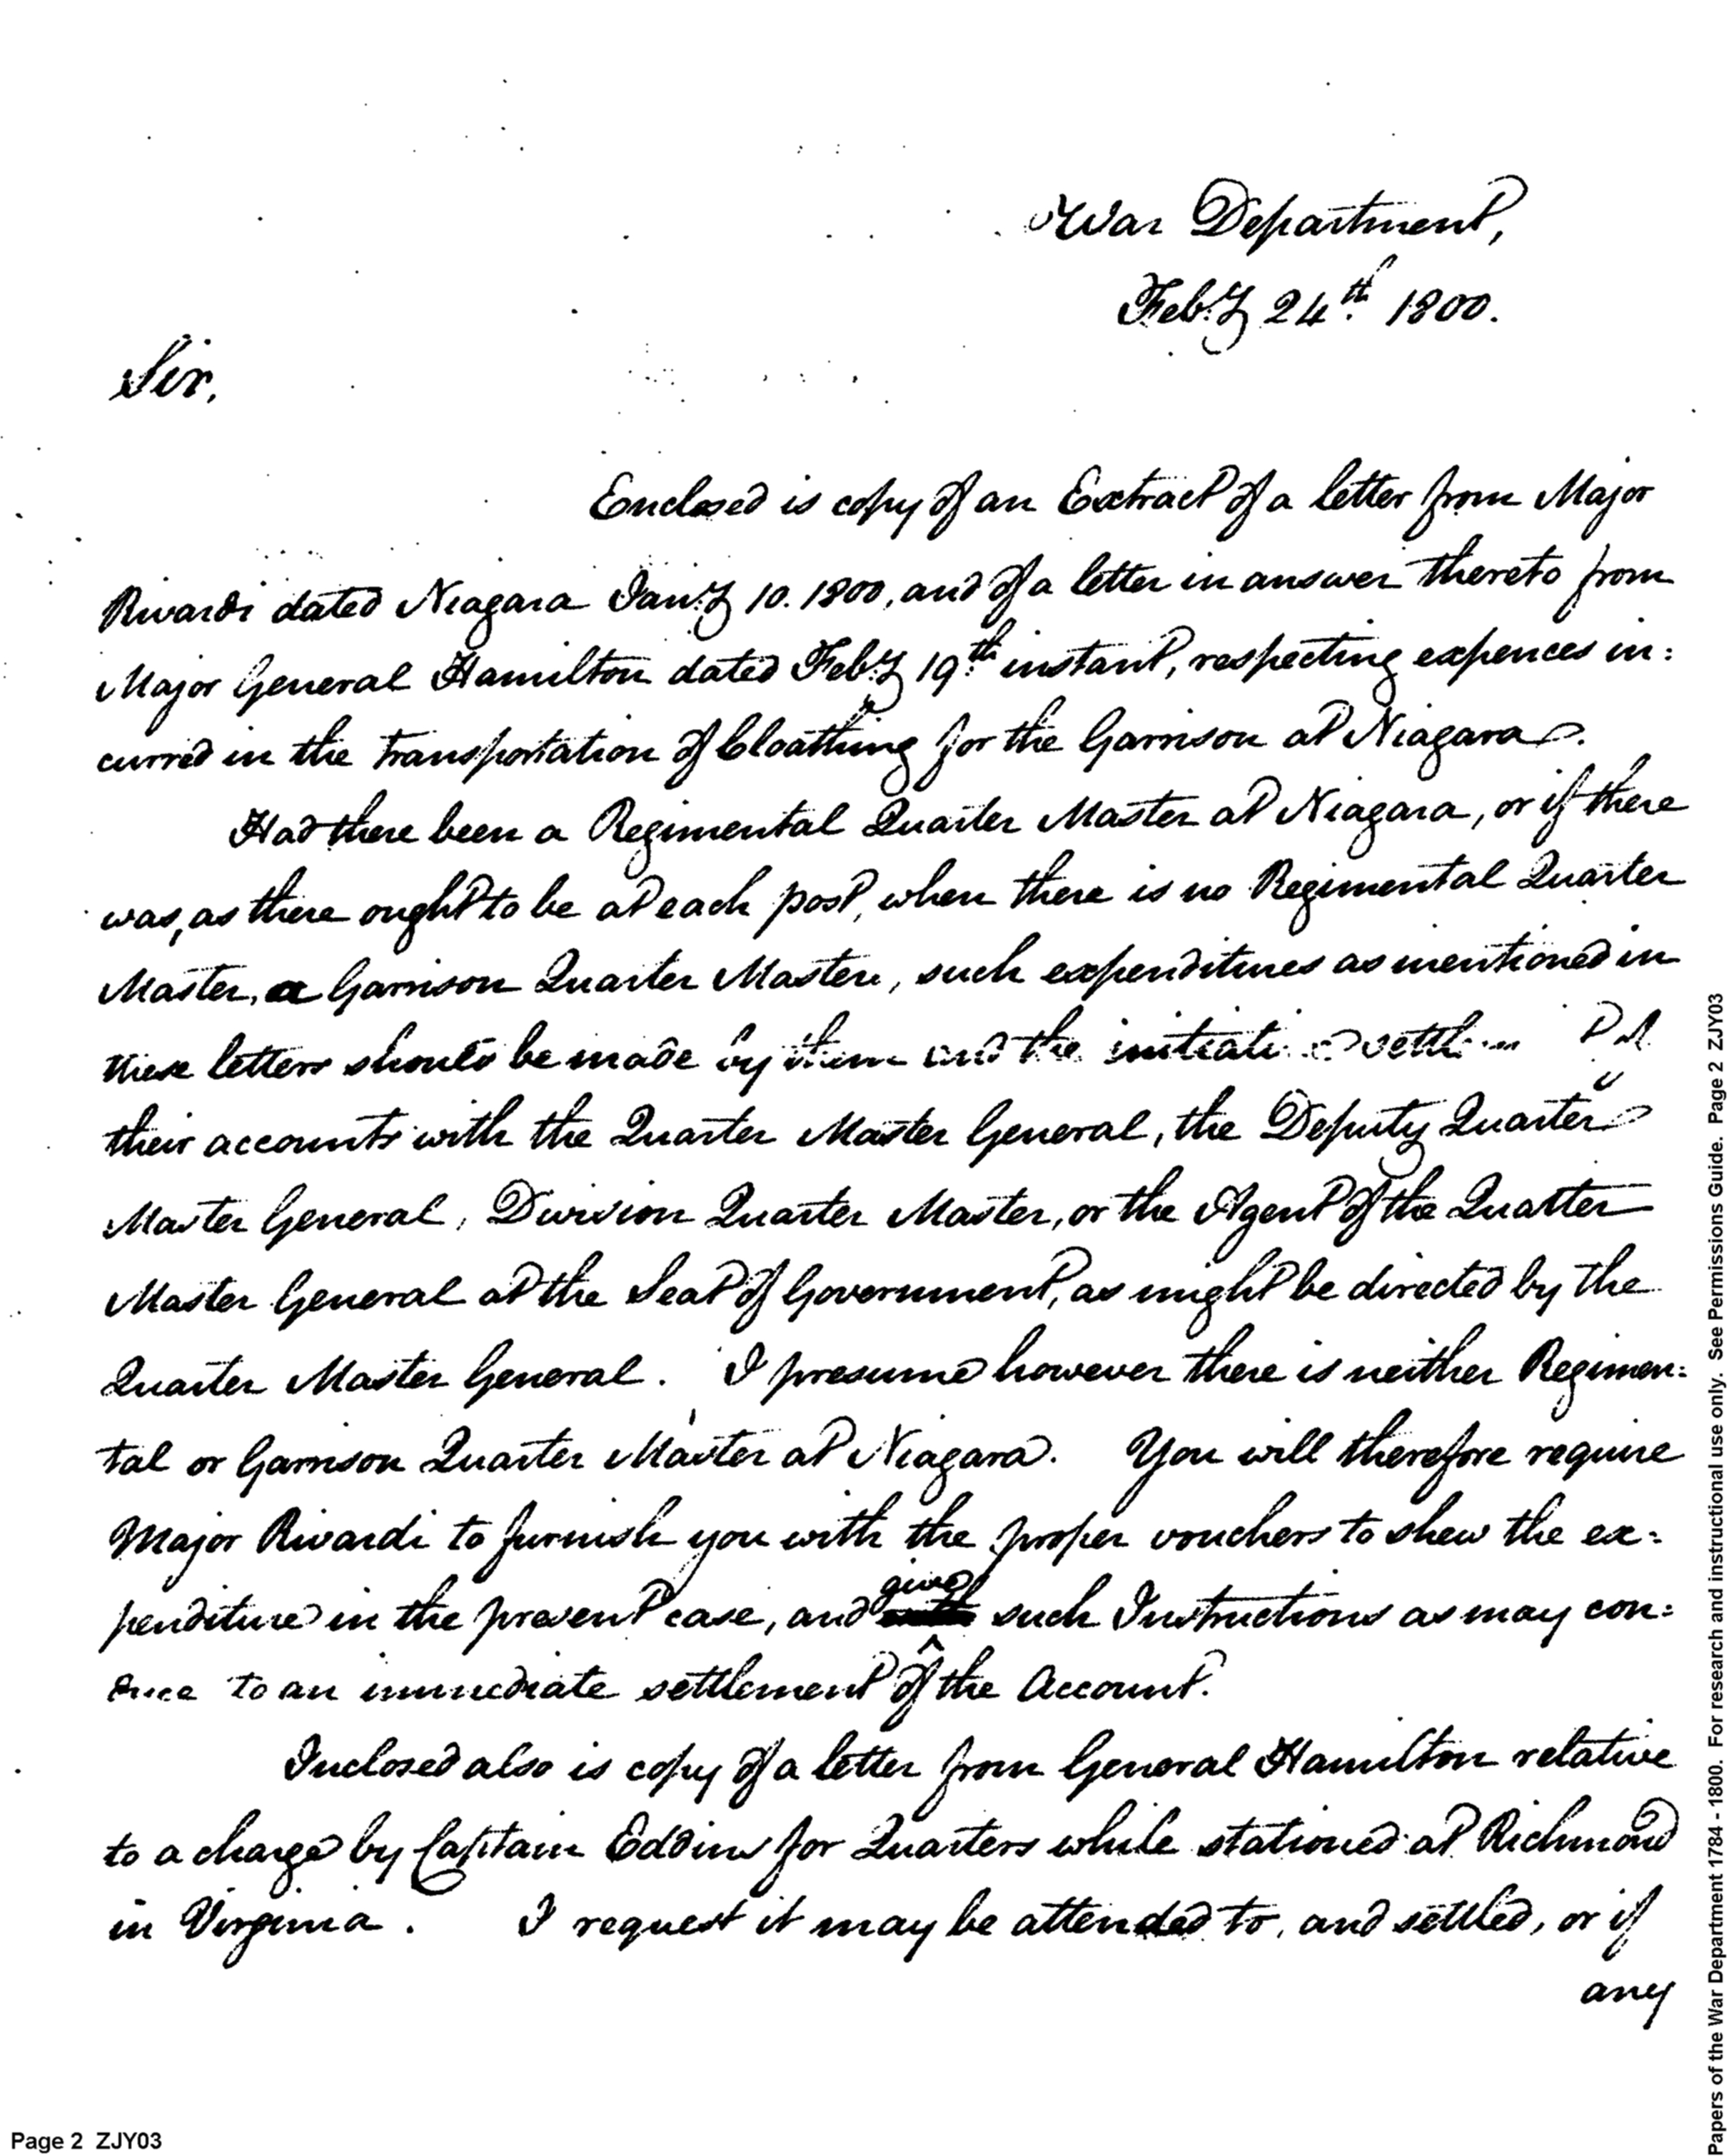 War Department,
Feb.y 24th 1800.
Sir,
Enclosed is copy of an Extract of a letter from Major
Rivardi dated Niagara Jan.y 10. 1800, and of a letter in answer thereto from
Major General Hamilton dated Feb.y 19th instant, respecting expences in:
curred in the transportation of Cloathing for the Garrison at Niagara.
Had there been a Regimental Quarter Master at Niagara, or if there
was, as there ought to be at each post, when there is no Regimental Quarter
Master, a Garrison Quarter Master, such expenditures as mentioned in
these letters should be made by them and the
their accounts with the Quarter Master General, the Deputy Quarter
Master General, Division Quarter Master, or the Agent of the Quarter
Master General at the Seat of Government, as might be directed by the
Quarter Master General. I presume however there is neither Regimen:
tal or Garrison Quarter Master at Niagara. You will therefore require
Major Rivardi to furnish you with the proper vouchers to shew the ex:
penditure in the present case, and give such Instructions as may con:
duce to an immediate settlement of the Account.
Inclosed also is copy of a letter from General Hamilton relative
to a charge by Captain Eddins for Quarters while stationed at Richmond
in Virginia. I request it may be attended to, and settled, or if
any
Page 2 ZJY03
Papers of the War Department 1784 - 1800. For research and instructional use only. See Permissions Guide. Page 2 ZJY03